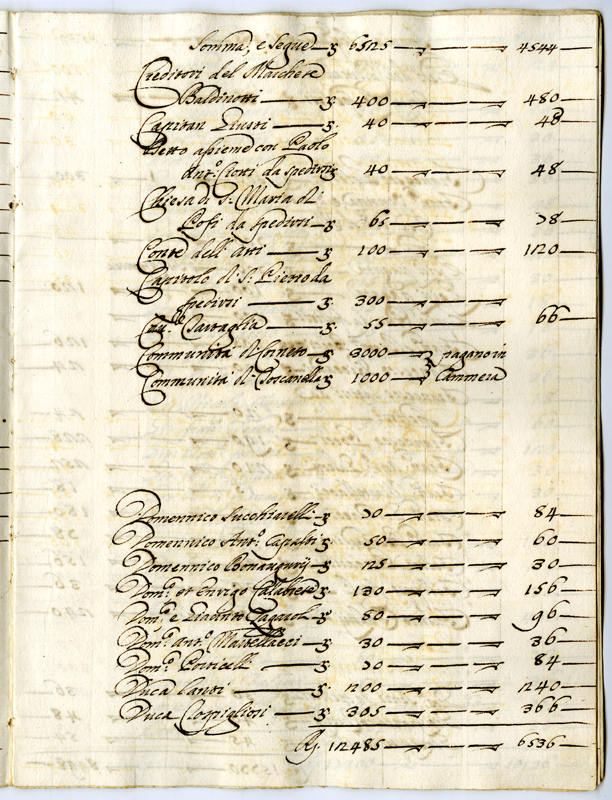 Somma, e segue — 6525 — 4544
Creditori del Marchese
Baldinotti — 400 — 480
Capitan Giusti — 40 — 48
Detto assieme con Paolo
Ant.o Ciotti da spedirsi 40 — 48
Chiesa di S. Maria di
da spedirsi — 65 — 78
Conte dell'arti — 100 — 120
Capitolo di S. Pietro da
spedirsi — 300 —
Cav.re Tartaglia — 55 — 66
Communità di Corneto — 3000 — pagano in
Communità di Toscanella 1000 — Cammera
Domennico Succhiarelli — 70 — 84
Domennico Ant.o Capalti 50 — 60
Domennico Bonaugurij 25 — 30
Dom.o et Enrigo Calabrese 130 — 156
Dom.o e — 80 — 96
Dom.o Ant.o Martellacci — 30 — 36
Dom.o Porticelli — 70 — 84
Duca Lanti — 200 — 240
Duca Rospigliosi — 305 — 366
12485 — 6536